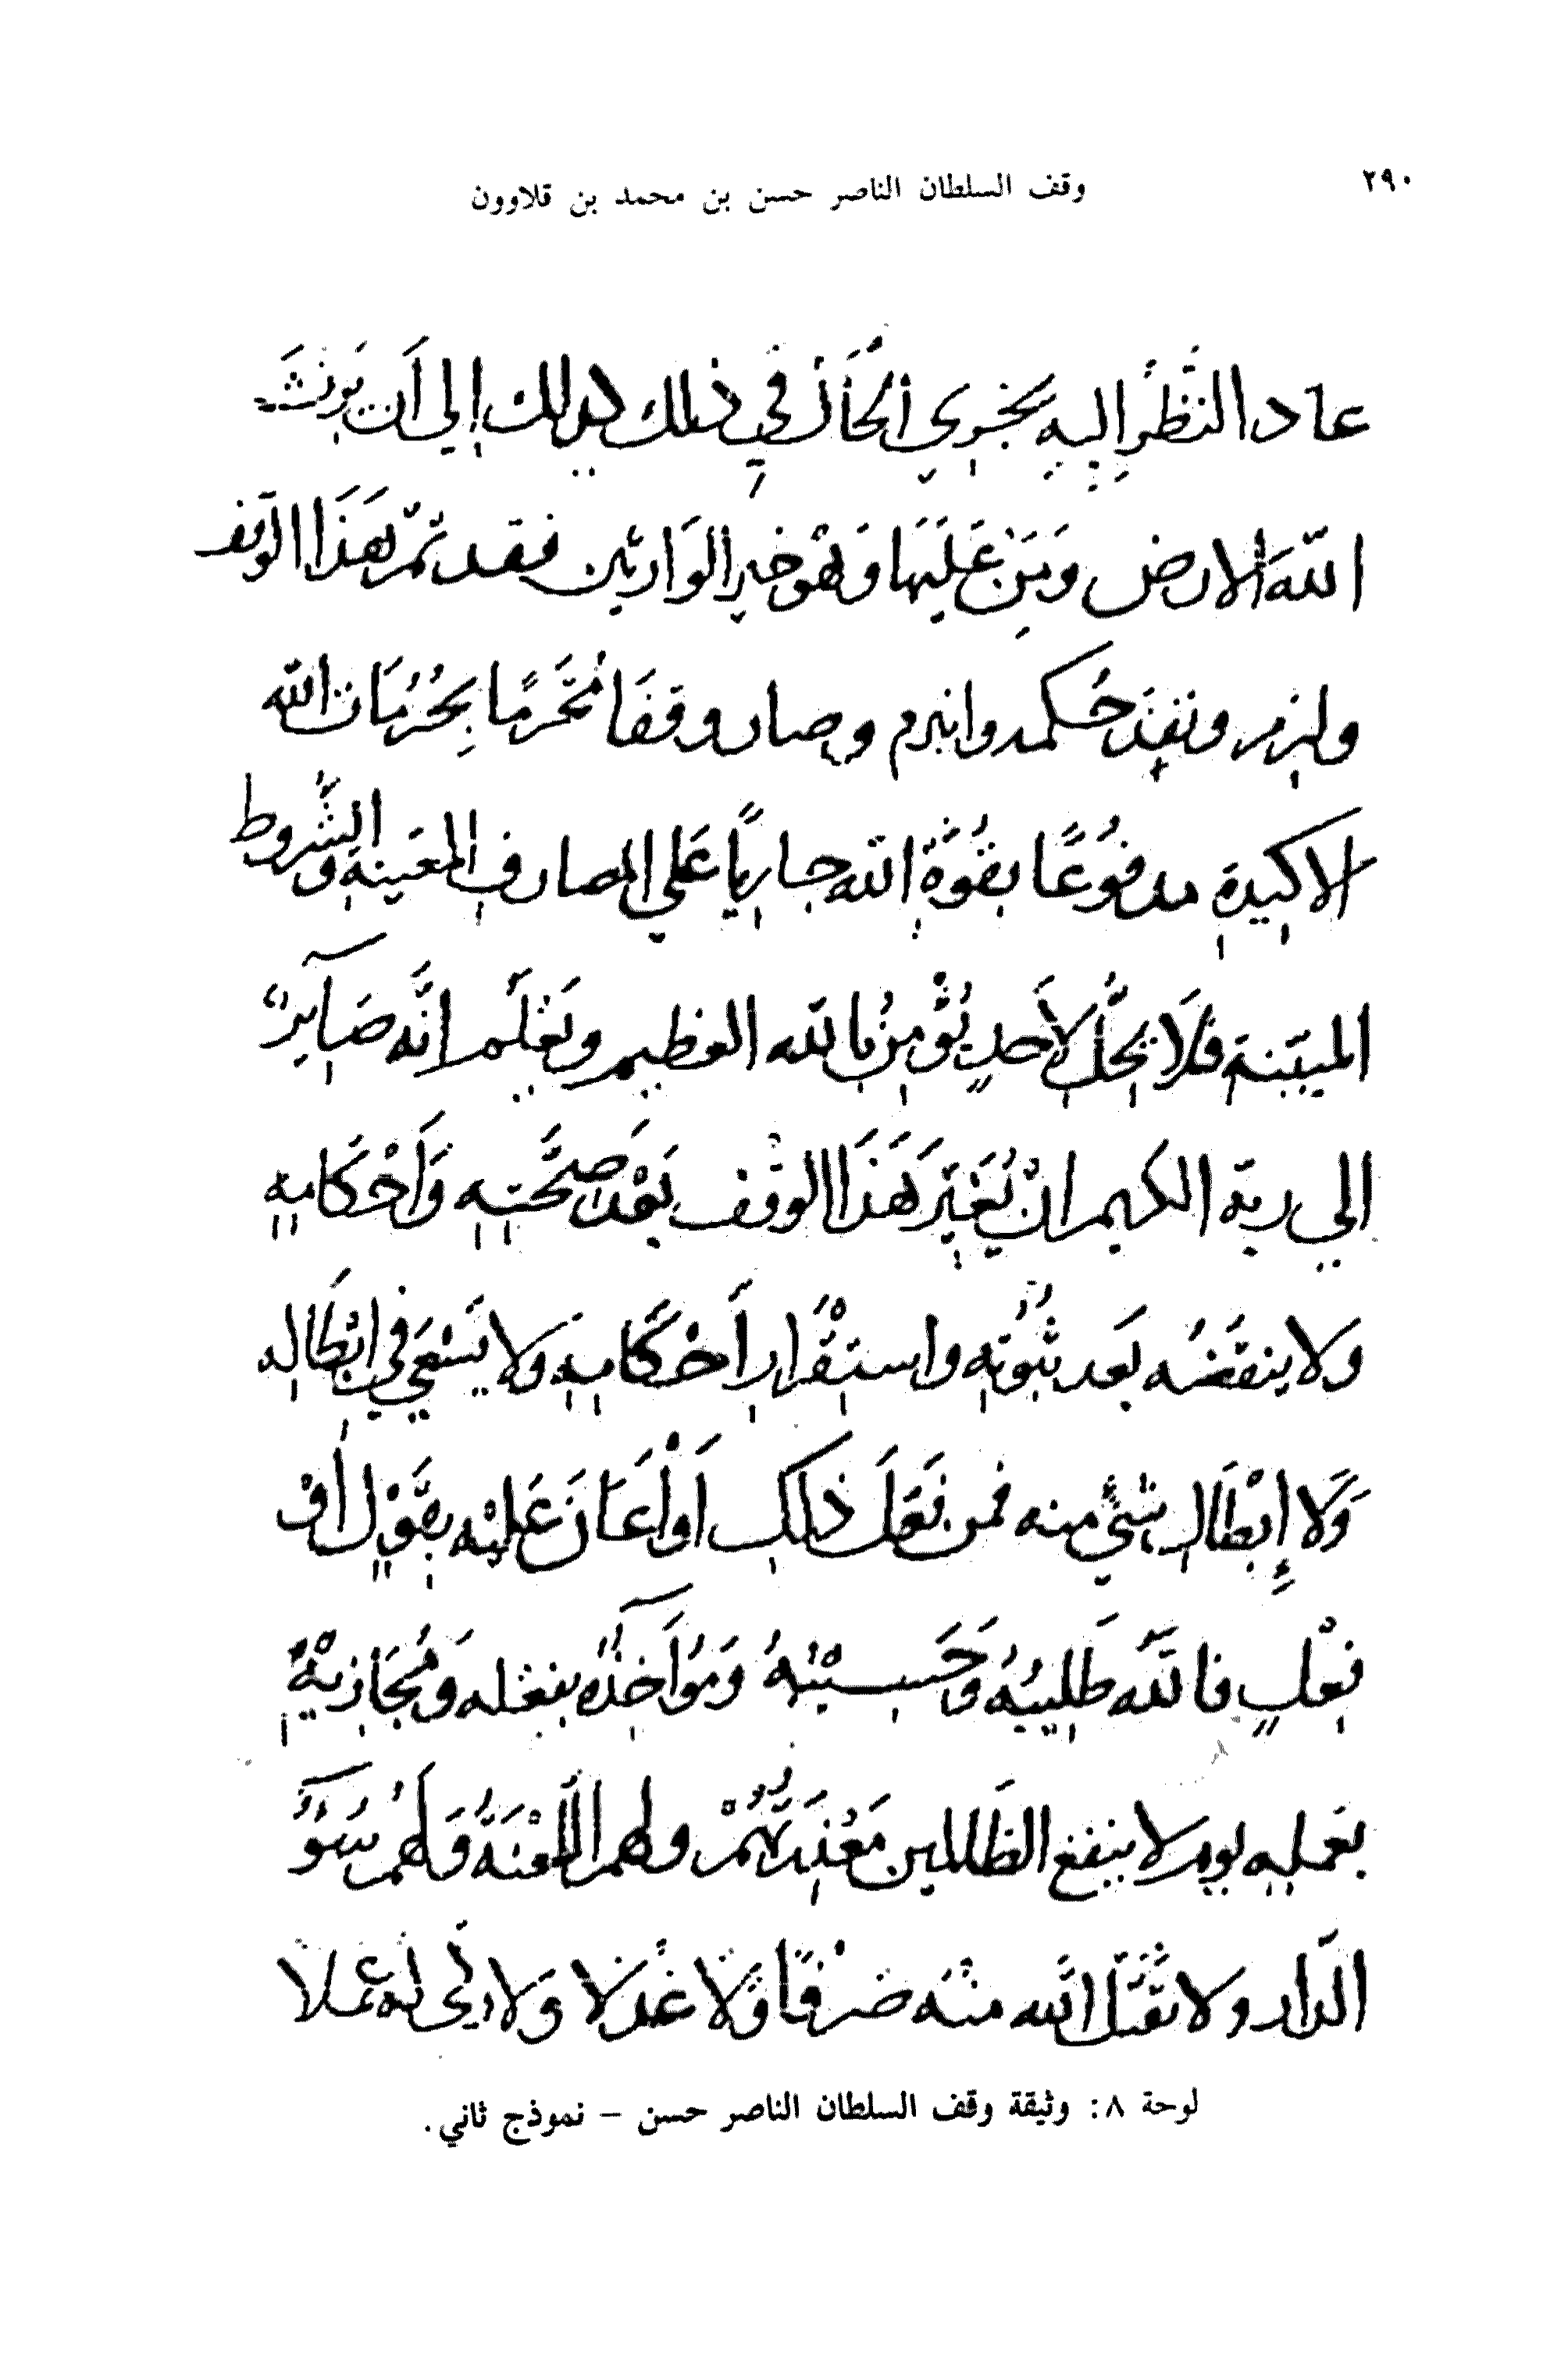 ٢٩٠
وقف السلطان الناصر حسن بن محمد بن قلاوون
عاد النَّظرُ إليهِ يجْرِي الحَالُ فِي ذلك كذلك إلى أَن يَرِثَ
اللهَ الارض وَمَن عَلَيْهَا وَهْوَ خير الوَارثين فقد تمّ هَذَا الوقف
ولزم ونفذ حُكمه وانبرم وصار وقفَا مُحَّرمًا بِحُرُمَات الله
الاكيدةِ مدفُوعًا بقُوَّةِ الله جاريًا عَلي المصارفِ المعَينةِ والشُّروط
المبيّنة فَلَا يحِلُّ لأَحدٍ يُؤْمِنُ بالله العظيم ويَعْلَم انَّه صَآيِرٌ
الي ربّه الكريم انْ يُغَيِّر هَذَا الوقْف بَعْد صحَّتِهِ وَأَحْكَامِهِ
وَلا ينقضُه بَعد ثُبُوتِهِ واستِقْرَارِ أَحْكَامِهِ وَلا يَسْعَي في ابْطَالِه
وَلَا إِبْطَالِ شئٍ منه فمن فَعَلَ ذلك اَوْ أَعَانَ عَليْه بِقَوْلٍ اوْ
فِعْلٍ فاللَّه طَلِيبُهُ وَحَسِيْبُهُ وَمُؤَآخِذُهُ بِفِعْله وَمُجَازِيْهِ
بعَملِهِ يوم لا ينفع الظَالمين مَعْذِرَتُهُمْ ولهم اللَّعْنَةُ وَلَهُمْ سُوَّءُ
الدَّار ولا يَقْبَل الله منْهُ صَرْفًا وَلَا عَدْلا وَلا زكى له عملا
لوحة ٨: وثيقة وقف السلطان الناصر حسن – نموذج ثاني.